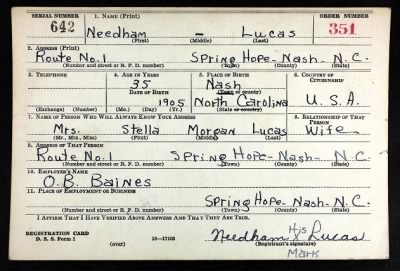 SERIAL NUMBER 1. NAME (Print) ORDER NUMBER
642 Needham - Lucas 351
(First) (Middle) (Last)
2. ADDRESS (Print)
Route No. 1 Spring Hope - Nash - N.C.
(Number and street or R. F. D. number) (Town) (County) (State)
3. TELEPHONE 4. AGE IN YEARS 5. PLACE OF BIRTH 6. COUNTRY OF CITIZENSHIP
35 Nash
DATE OF BIRTH (Town or county)
1905 North Carolina U.S.A.
(Exchange) (Number) (Mo.) (Day) (Yr.) (State or country)
7. NAME OF PERSON WHO WILL ALWAYS KNOW YOUR ADDRESS 8. RELATIONSHIP OF THAT PERSON
Mrs. Stella Morgan Lucas Wife
(Mr., Mrs., Miss) (First) (Middle) (Last)
9. ADDRESS OF THAT PERSON
Route No. 1 Spring Hope - Nash - N.C.
(Number and street or R. F. D. number) (Town) (County) (State)
10. EMPLOYER'S NAME
O.B. Baines
11. PLACE OF EMPLOYMENT OR BUSINESS
Spring Hope - Nash - N.C.
(Number and street or R. F. D. number) (Town) (County) (State)
I AFFIRM THAT I HAVE VERIFIED ABOVE ANSWERS AND THAT THEY ARE TRUE.
REGISTRATION CARD
D. S. S. Form 1 (over) 16-17105
His
Needham X Lucas
(Registrant's signature)
Mark